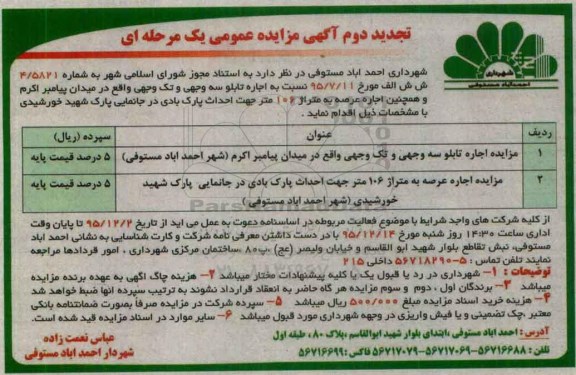 تجدید دوم آگهی مزایده عمومی یک مرحله ای
شهرداری
احمدآباد مستوفی
شهرداری احمد اباد مستوفی در نظر دارد به استناد مجوز شورای اسلامی شهر به شماره ۴/۵۸۲۱
ش ش الف مورخ ۹۵/۷/۱۱ نسبت به اجاره تابلو سه وجهی و تک وجهی واقع در میدان پیامبر اکرم
و همچنین اجاره عرصه به متراژ ۱۰۶ متر جهت احداث پارک بادی در جانمایی پارک شهید خورشیدی
با مشخصات ذیل اقدام نماید .
ردیف عنوان سپرده (ریال)
۱ مزایده اجاره تابلو سه وجهی و تک وجهی واقع در میدان پیامبر اکرم (شهر احمد اباد مستوفی) ۵ درصد قیمت پایه
۲ مزایده اجاره عرصه به متراژ ۱۰۶ متر جهت احداث پارک بادی در جانمایی پارک شهید ۵ درصد قیمت پایه
خورشیدی (شهر احمد اباد مستوفی )
از کلیه شرکت های واجد شرایط با موضوع فعالیت مربوطه در اساسنامه دعوت به عمل می اید از تاریخ ۹۵/۱۲/۲ تا پایان وقت
اداری ساعت ۱۴:۳۰ روز شنبه مورخ ۹۵/۱۲/۱۴ با در دست داشتن معرفی نامه شرکت و کارت شناسایی به نشانی احمد اباد
مستوفی، نبش تقاطع بلوار شهید ابو القاسم و خیابان ولیعصر (عج) ،پ۸۰ ،ساختمان مرکزی شهرداری ، امور قراردادها مراجعه
نمایند تلفن تماس : ۵-۵۶۷۱۸۲۹۰ داخلی ۲۱۵
توضیحات : ۱- شهرداری در رد یا قبول یک یا کلیه پیشنهادات مختار میباشد ۲- هزینه چاک اگهی به عهده برنده مزایده
میباشد ۳- برندگان اول ، دوم و سوم مزایده هر گاه حاضر به انعقاد قرارداد نشوند به ترتیب سپرده انها ضبط خواهد شد
۴- هزینه خرید اسناد مزایده مبلغ ۵۰۰/۰۰۰ ریال میباشد ۵- سپرده شرکت در مزایده صرفاً بصورت ضمانتنامه بانکی
معتبر ،چک تضمینی و یا فیش واریزی در وجهه شهرداری مورد قبول میباشد ۶- سایر موارد در اسناد مزایده قید شده است.
آدرس : احمد اباد مستوفی ،ابتدای بلوار شهید ابوالقاسم ،پلاک ۸۰ ، طبقه اول
تلفن : ۵۶۷۱۶۶۸۸-۵۶۷۱۷۰۶۹-۵۶۷۱۷۰۷۹ فاکس :۵۶۷۱۶۶۹۹
عباس نعمت زاده
شهردار احمد اباد مستوفی